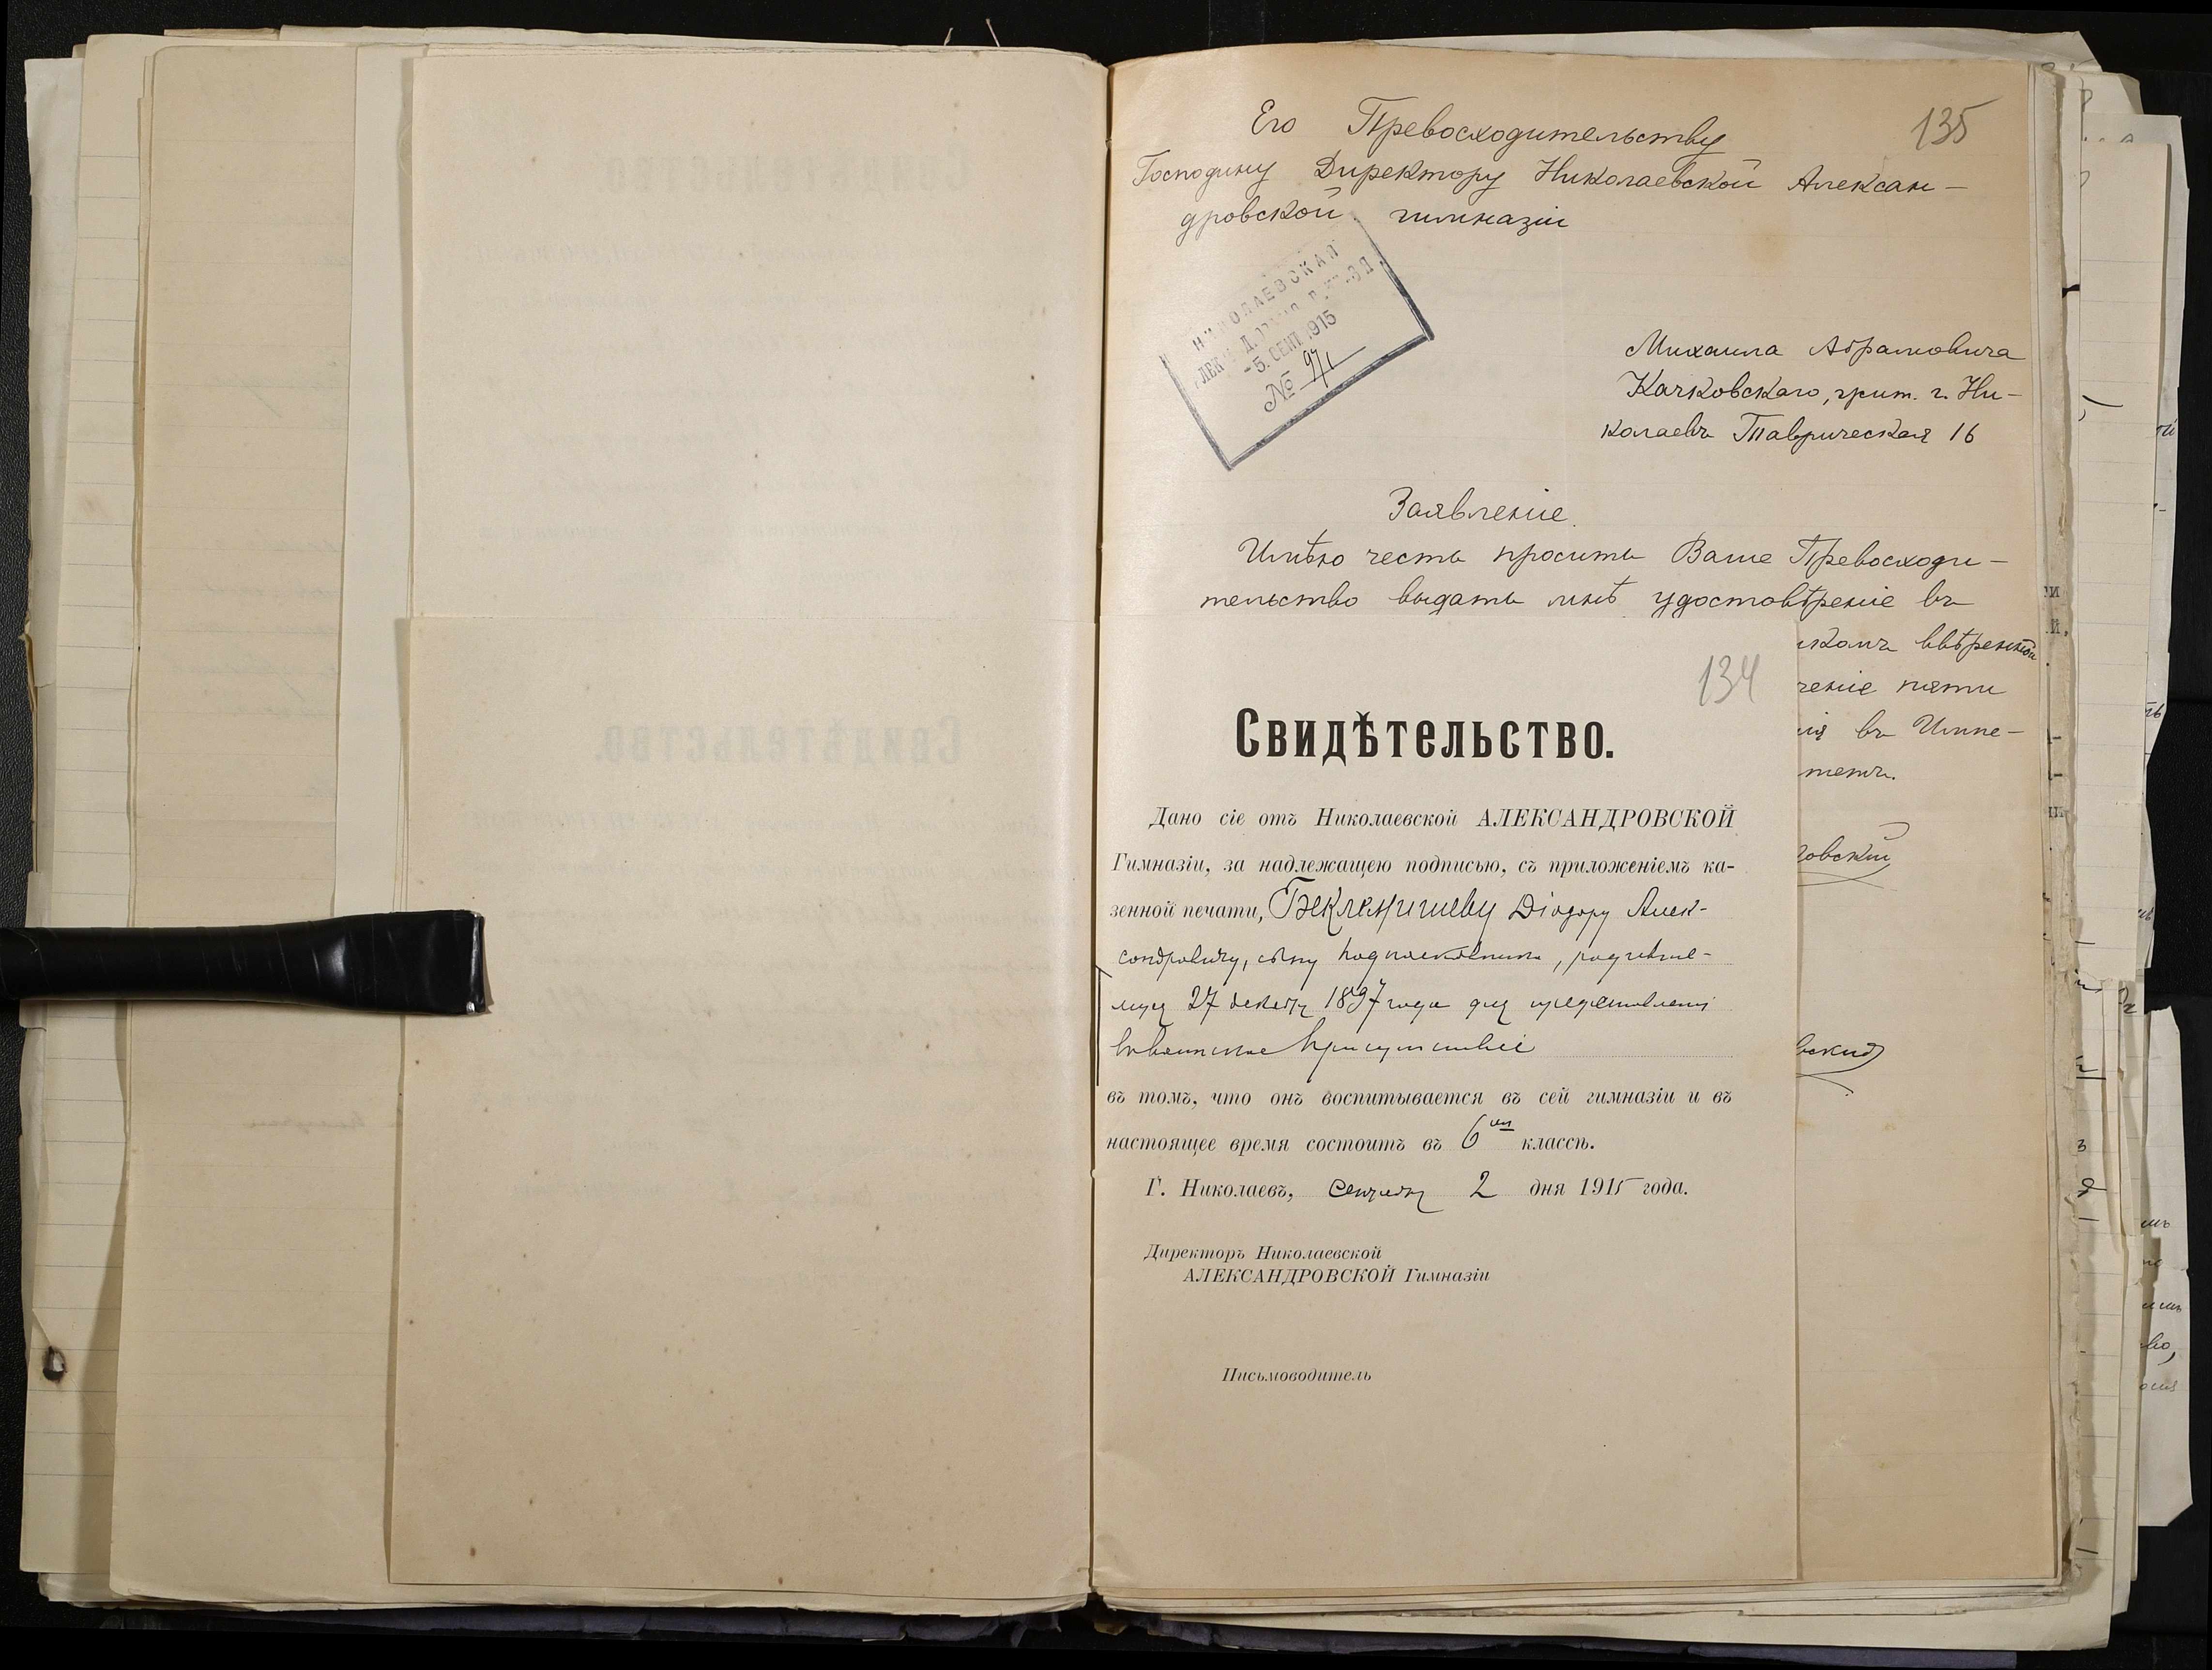 135
Его Превосходительству
Господину Директору Николаевской Алексан-
дровской гимназіи
НИКОЛАЕВСКАЯ
-5. СЕНТ 1915
№ 971
Михаила Абрамовича
Качковскаго, жит. г. Ни-
колаевъ Таврическая 16
Заявленіе.
Имѣю честь просить Ваше Превосходи-
тельство выдать мнѣ удостовѣреніе въ
икомъ ввѣренной
ченіе пяти
нія въ Импе-
тетъ.
ковскій
вскій
134
Свидѣтельство.
Дано сіе отъ Николаевской АЛЕКСАНДРОВСКОЙ
Гимназіи, за надлежащею подписью, съ приложеніемъ ка-
зенной печати, Беклемишеву Діодору Алек-
сандровичу, сыну подполковника, родивше-
муся 27 декабря 1897 года для представленія
въ воинское присутствіе
въ томъ, что онъ воспитывается въ сей гимназіи и въ
настоящее время состоитъ въ 6ом классѣ.
Г. Николаевъ, Сентября 2 дня 1915 года.
Директоръ Николаевской
АЛЕКСАНДРОВСКОЙ Гимназіи
Письмоводитель